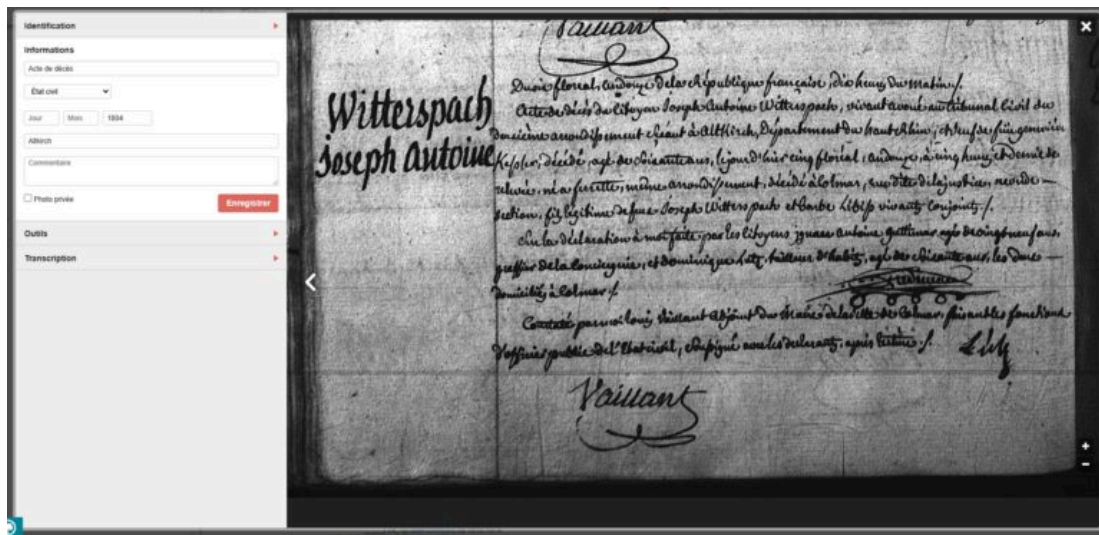 Identification
Informations
Acte de décès
État civil
Jour Mois 1804
Altkirch
Commentaire
Photo privée
Enregistrer
Outils
Transcription
Vaillant
Witterspach
Joseph Antoine
Du six floreal, an douze de la République française, dix heures du matin /.
Acte de décès du Citoyen Joseph Antoine Witterspach, vivant avoué au tribunal Civil du
deuxième arrondissement séant à Altkirch, Département du haut Rhin, et veuf de
Kessler, décédé, agé de soixante ans, le jour d'hier cinq floréal, an douze, à cinq heures et demie de
relevée, né a ferrette, même arrondissement, décédé à Colmar, rue dite de la justice,
section, fils légitime de feus Joseph Witterspach et Barbe vivants conjoints /.
Sur la déclaration à moi faite par les Citoyens antoine agé de vingt neuf ans,
greffier de la et Dominique Lutz, tailleur d'habits, agé de soixante ans, les deux
domiciliés à Colmar /.
Constaté par moi Louis Vaillant adjoint du Maire de la ville de Colmar, faisant les fonctions
d'officier public de l'Etat civil, soussigné avec les declarants, après lecture /.
Lutz
Vaillant